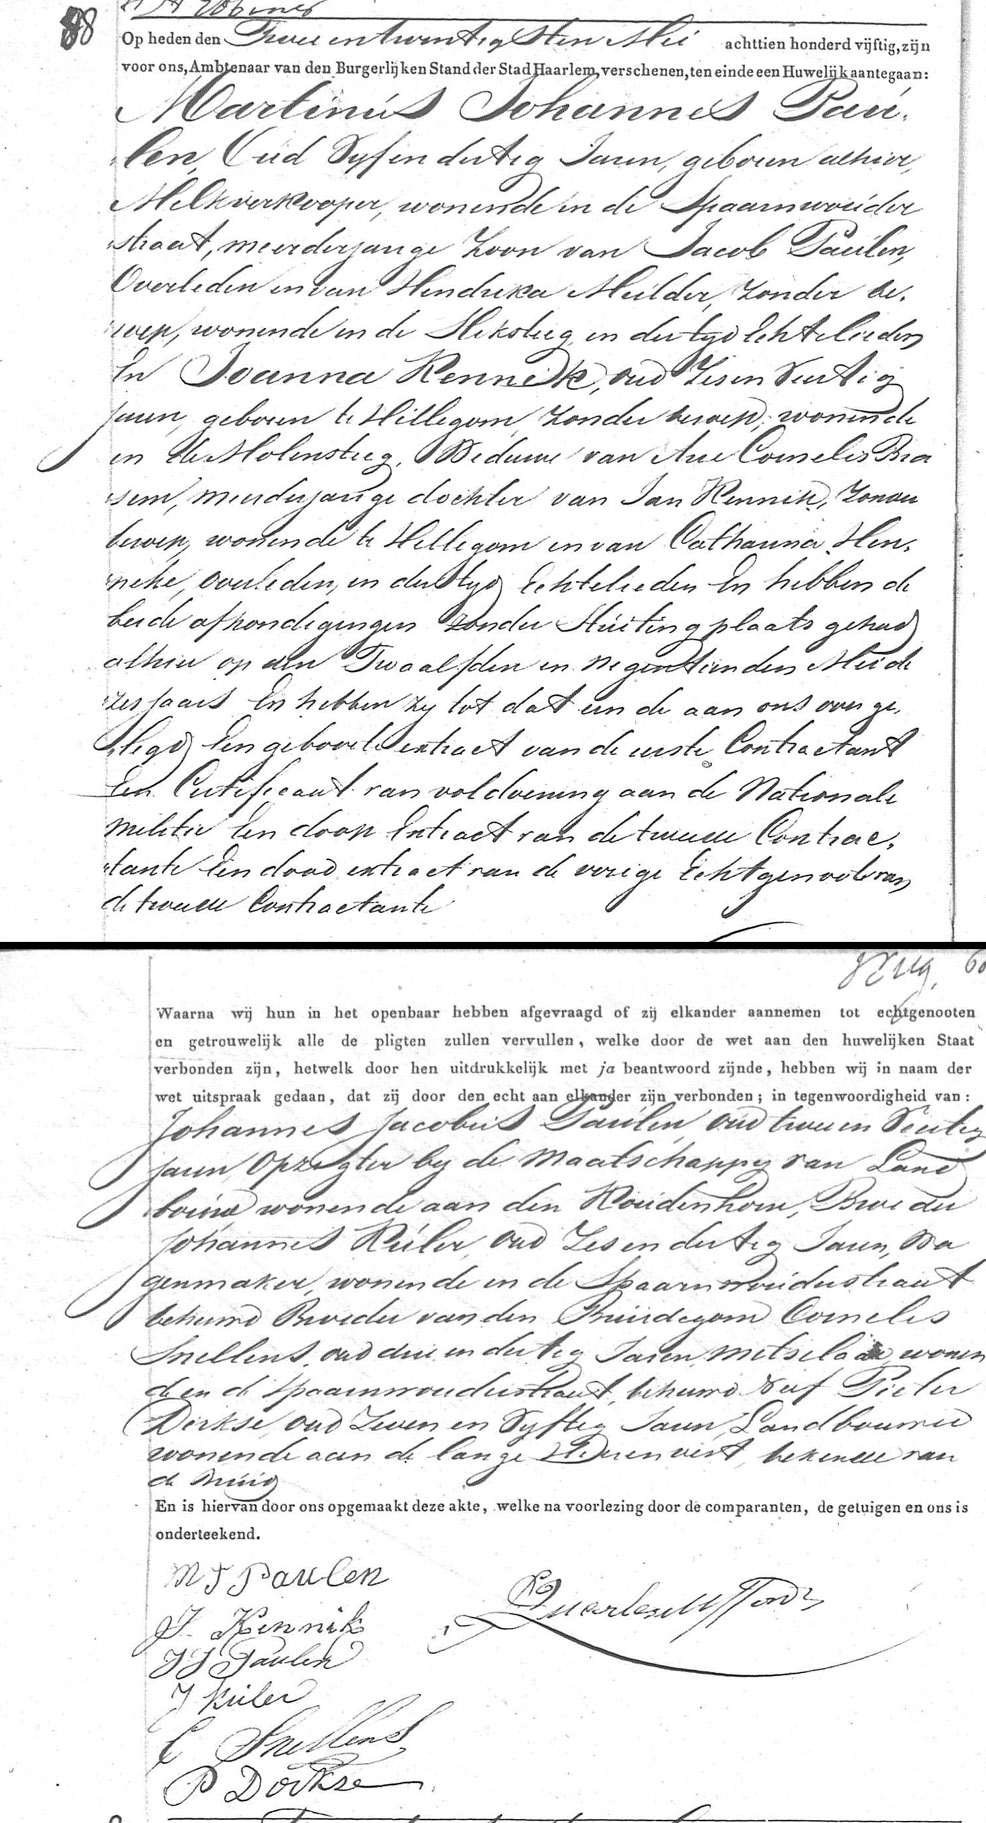 88
Op heden den Twee en twintigsten Mei achttien honderd vijftig, zijn
voor ons, Ambtenaar van den Burgerlijken Stand der Stad Haarlem, verschenen, ten einde een Huwelijk aantegaan:
Martinus Johannes Pau,
len, Oud Vyf en dertig Jaren, geboren alhier,
Melkverkooper, wonende in de Spaarnwouder
straat, meerderjarige Zoon van Jacob Paulen,
Overleden en van Hendrika Mulder, Zonder Be,
roep, wonende in de Heksteeg in der tyd Echtelieden
En Joanna Kennik, oud Zes en Veertig
Jaren, geboren te Hillegom, Zonder beroep, wonende
in de Molensteeg, Weduwe van Arie Cornelis Bra
sem, meerderjarige dochter van Jan Kennik, Zonder
beroep, wonende te Hillegom en van Catharina Hen,
neke, overleden, in der tyd Echtelieden En hebben de
beide afkondigingen Zonder Stuiting plaats gehad
alhier op den Twaalfden en Negentienden Mei de
zes Jaars En hebben zy tot dat einde aan ons overge,
legd Een geboorte extract van de eerste Contractant
Een Certificaat van voldoening aan de Nationale
Militie Een doop Extract van de tweede Contrac,
tante Een dood extract van de vorige Echtgenoot van
de tweede Contractante
Waarna wij hun in het openbaar hebben afgevraagd of zij elkander aannemen tot echtgenooten
en getrouwelijk alle de pligten zullen vervullen, welke door de wet aan den huwelijken Staat
verbonden zijn, hetwelk door hen uitdrukkelijk met ja beantwoord zijnde, hebben wij in naam der
wet uitspraak gedaan, dat zij door den echt aan elkander zijn verbonden; in tegenwoordigheid van:
Johannes Jacobus Paulen, oud twee en Veertig
Jaren, Opzigter by de Maatschappy van Land
bouw wonende aan den Koudenhorn, Broeder
Johannes Kuler, Oud Zes en dertig Jaren, Wa
genmaker, wonende in de Spaarnwouderstraat
behuwd Broeder van den Bruidegom Cornelis
Snellens, oud drie en dertig Jaren, Metselaar, wonen
de in de Spaarnwouderstraat, behuwd Neef Pieter
Derkse, oud Zeven en Vyftig Jaren, Landbouwer
wonende aan de lange Heerenvest, bekende van
de Bruid
En is hiervan door ons opgemaakt deze akte, welke na voorlezing door de comparanten, de getuigen en ons is
onderteekend.
M J Paulen
J. Kennik
J J Paulen
J Kuler
C Snellens
P Dorkse